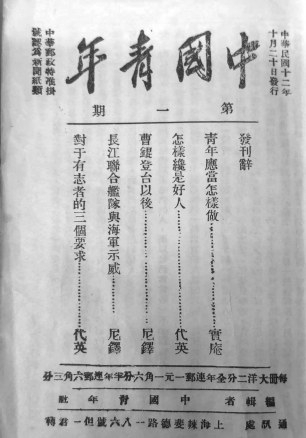 中華民國十二年
十月二十日發行
中國青年
第一期
中華郵政特准掛
號認爲新聞紙類
發刊辭
青年應當怎樣做……實庵
怎樣纔是好人……代英
曹錕登台以後……尼鐸
長江聯合艦隊與海軍示威……尼鐸
對于有志者的三個要求……代英
每冊大洋二分全年連郵一元一角六分半年連郵六角三分
編輯者中國青年社
通訊處上海辣斐德路一八六號但一君轉